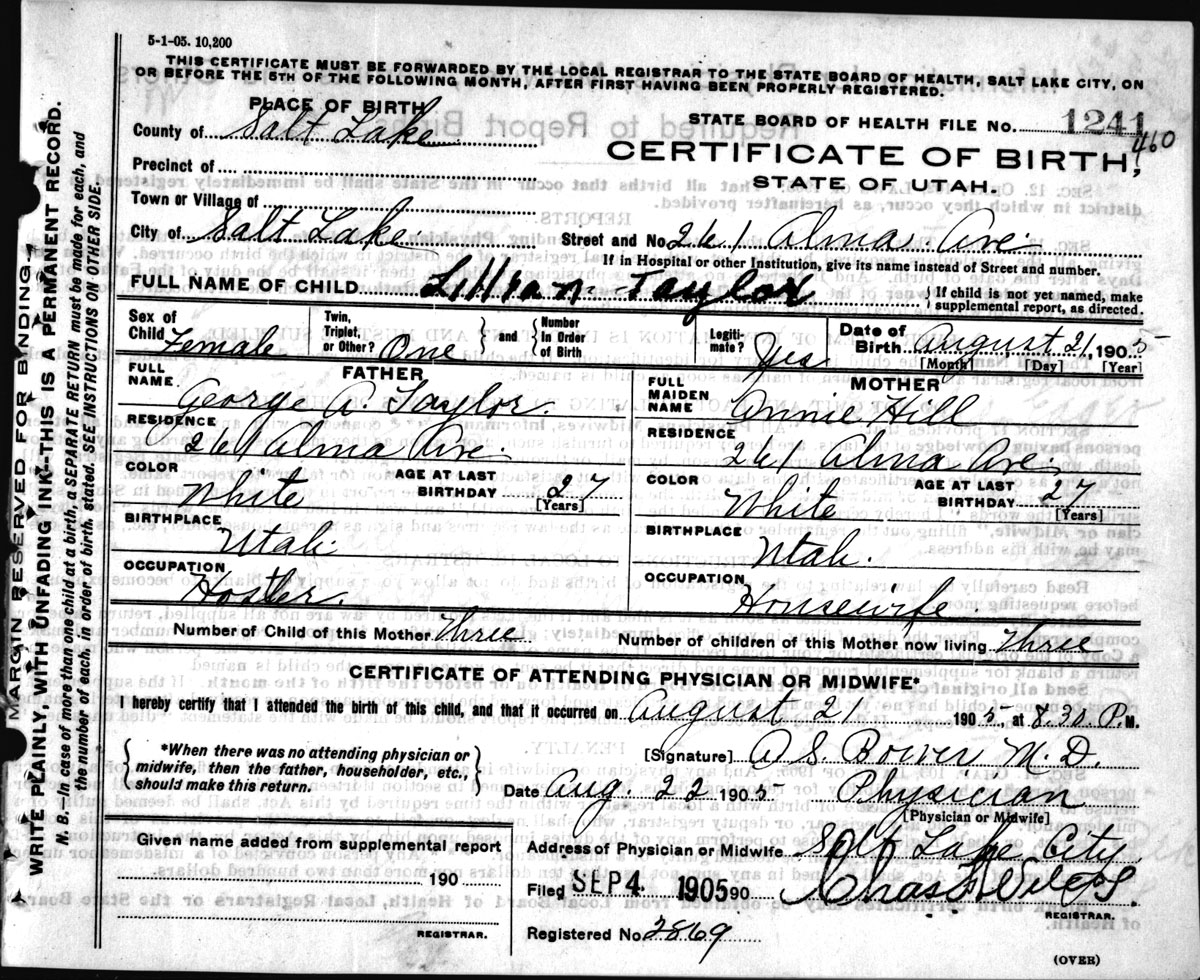 5-1-05. 10,200
THIS CERTIFICATE MUST BE FORWARDED BY THE LOCAL REGISTRAR TO THE STATE BOARD OF HEALTH, SALT LAKE CITY, ON
OR BEFORE THE 5TH OF THE FOLLOWING MONTH, AFTER FIRST HAVING BEEN PROPERLY REGISTERED.
PLACE OF BIRTH
STATE BOARD OF HEALTH FILE NO. 1241
460
County of Salt Lake
CERTIFICATE OF BIRTH,
Precinct of
STATE OF UTAH.
Town or Village of
City of Salt Lake Street and No. 261 Alma Ave.
If in Hospital or other Institution, give its name instead of Street and number.
FULL NAME OF CHILD Lillian Taylor { If child is not yet named, make
supplemental report, as directed.
Sex of Child Female
Twin, Triplet, or Other? One } and { Number In Order of Birth
Legiti-mate? Yes
Date of Birth August 21, 1905
[Month] [Day] [Year]
FATHER
FULL NAME George A. Taylor.
RESIDENCE 261 Alma Ave.
COLOR White AGE AT LAST BIRTHDAY 27 [Years]
BIRTHPLACE Utah
OCCUPATION Hostler.
MOTHER
FULL MAIDEN NAME Annie Hill
RESIDENCE 261 Alma Ave
COLOR White AGE AT LAST BIRTHDAY 27 [Years]
BIRTHPLACE Utah.
OCCUPATION Housewife
Number of Child of this Mother Three Number of children of this Mother now living Three
CERTIFICATE OF ATTENDING PHYSICIAN OR MIDWIFE*
I hereby certify that I attended the birth of this child, and that it occurred on August 21 1905, at 8.30 P. M.
{ *When there was no attending physician or
midwife, then the father, householder, etc.,
should make this return. }
[Signature] A S Bower M.D.
Date Aug. 22 1905 Physician
[Physician or Midwife]
Given name added from supplemental report
190
REGISTRAR.
Address of Physician or Midwife Salt Lake City
Filed SEP 4 1905 90
REGISTRAR.
Registered No. 2869
(OVER)
MARGIN RESERVED FOR BINDING.
WRITE PLAINLY WITH UNFADING INK—THIS IS A PERMANENT RECORD.
N. B.—In case of more than one child at a birth, a SEPARATE RETURN must be made for each, and
the number of each, in order of birth, stated. SEE INSTRUCTIONS ON OTHER SIDE.